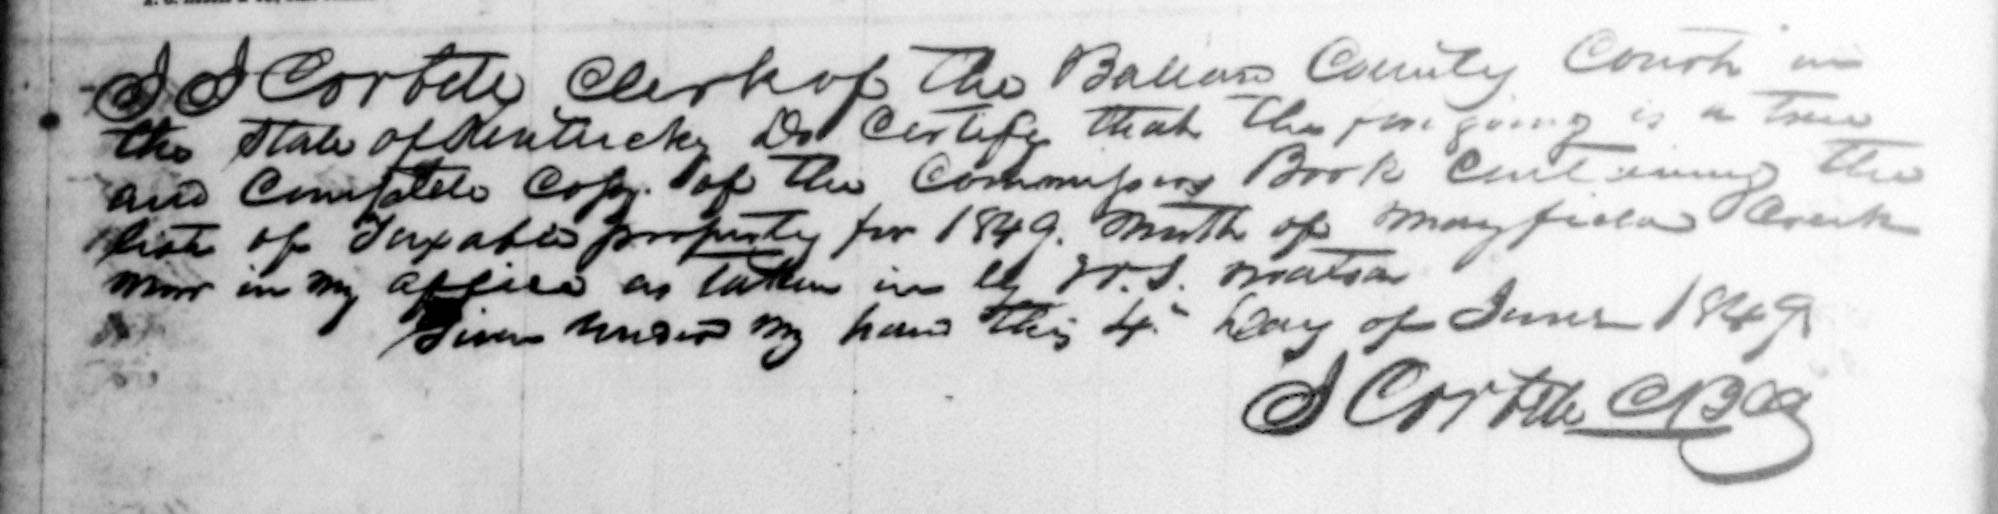 I J Corbett Clerk of the Ballard County Court in
the State of Kentucky Do Certify that the foregoing is a true
and Complete Copy. of the Commissioners Book Containing the
list of Taxable property for 1849. North of Mayfield Creek
now in my office as taken in by W. S. Watson
Given under my hand this 4th Day of June 1849
J Corbett CBCC